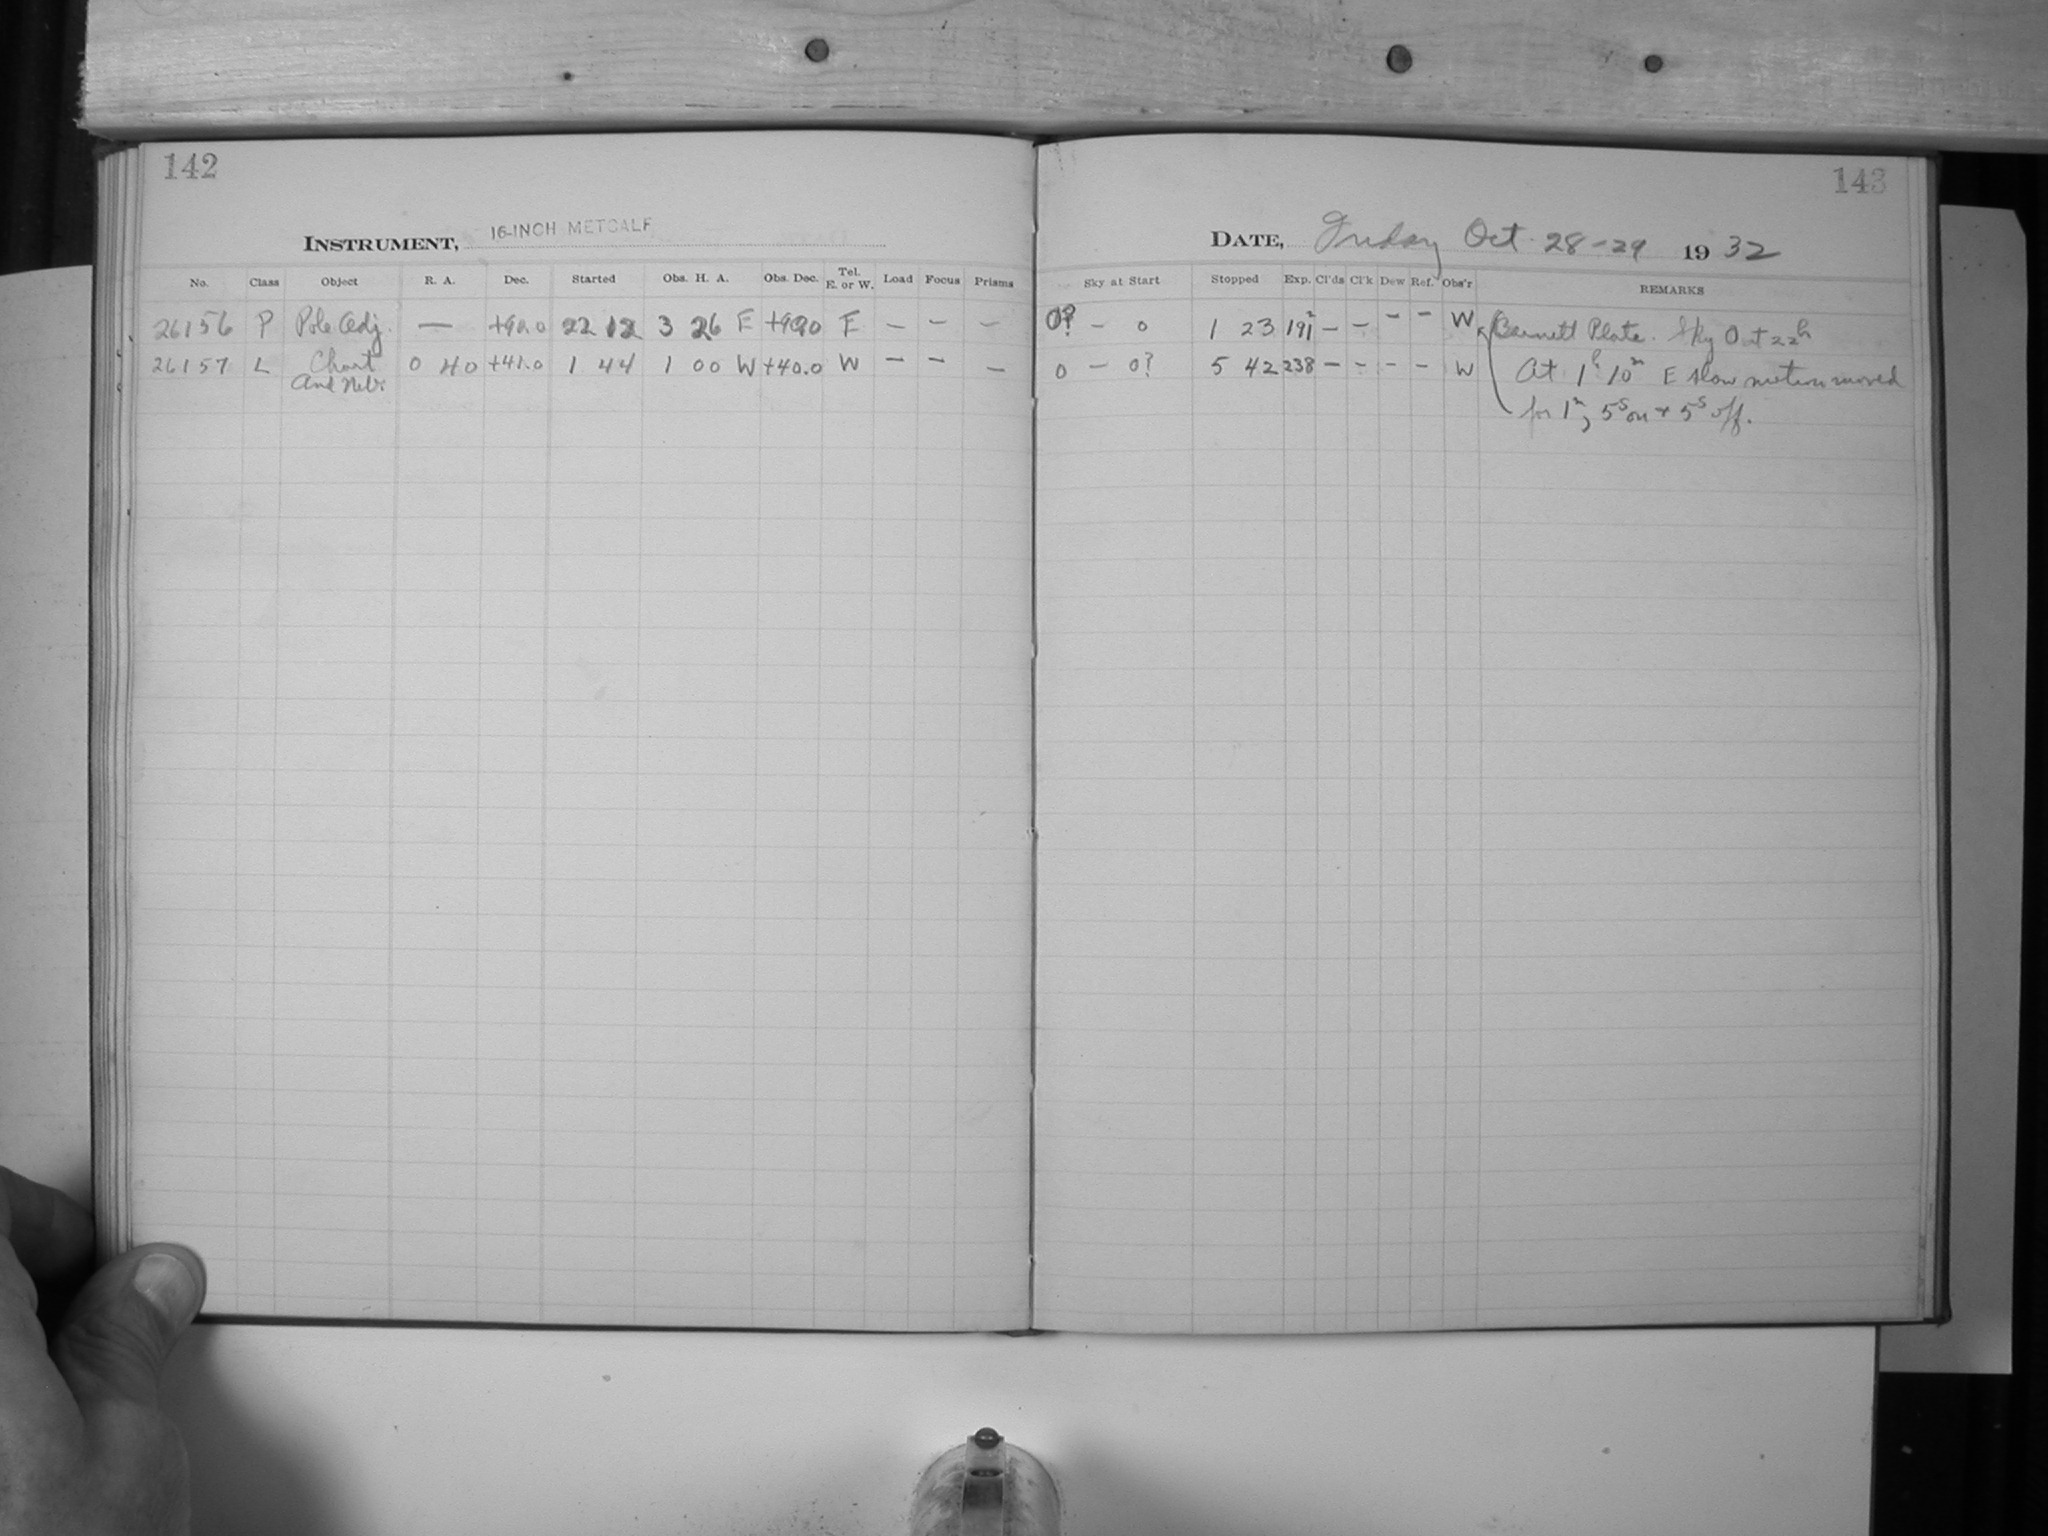 142
143
INSTRUMENT, 16-INCH METCALF
DATE, Friday Oct 28-29 1932
No. Class Object R. A. Dec. Started Obs. H. A. Obs. Dec. Tel. E. or W. Load Focus Prisms Sky at Start Stopped Exp. Cl'ds Cl'k Dew Ref. Obs'r REMARKS
26156 P Pole Adj. — +90.0 22 12 3 26 E +90.0 E — — — 0? — 0 1 23 191 — — — — W Barnett Plate. Sky 0 at 22h
26157 L Chart 0 40 +41.0 1 44 1 00 W +40.0 W — — — 0 — 0? 5 42 238 — — — — W At 1h 10m E slow motion moved
And Neb. for 1m, 5s on + 5s off.